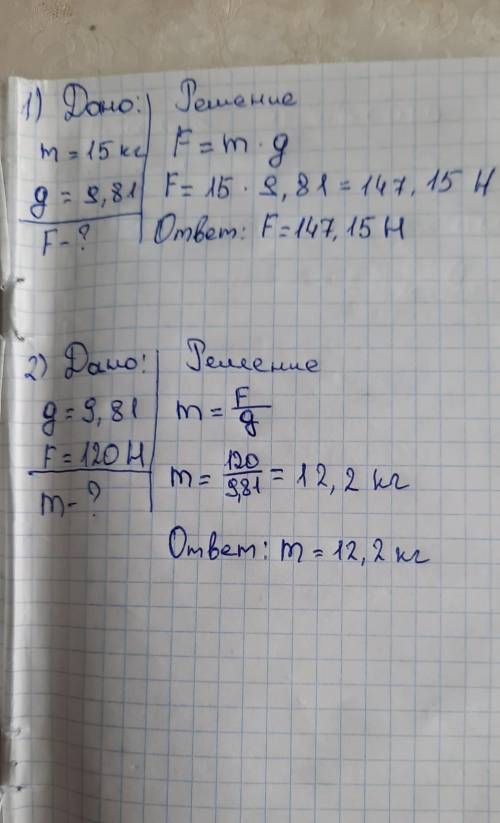 1) Дано: Решение
m = 15 кг F = m · g
g = 9,81 F = 15 · 9,81 = 147,15 Н
F - ? Ответ: F = 147,15 Н
2) Дано: Решение
g = 9,81 m = F/g
F = 120 Н m = 120/9,81 = 12,2 кг
m - ?
Ответ: m = 12,2 кг